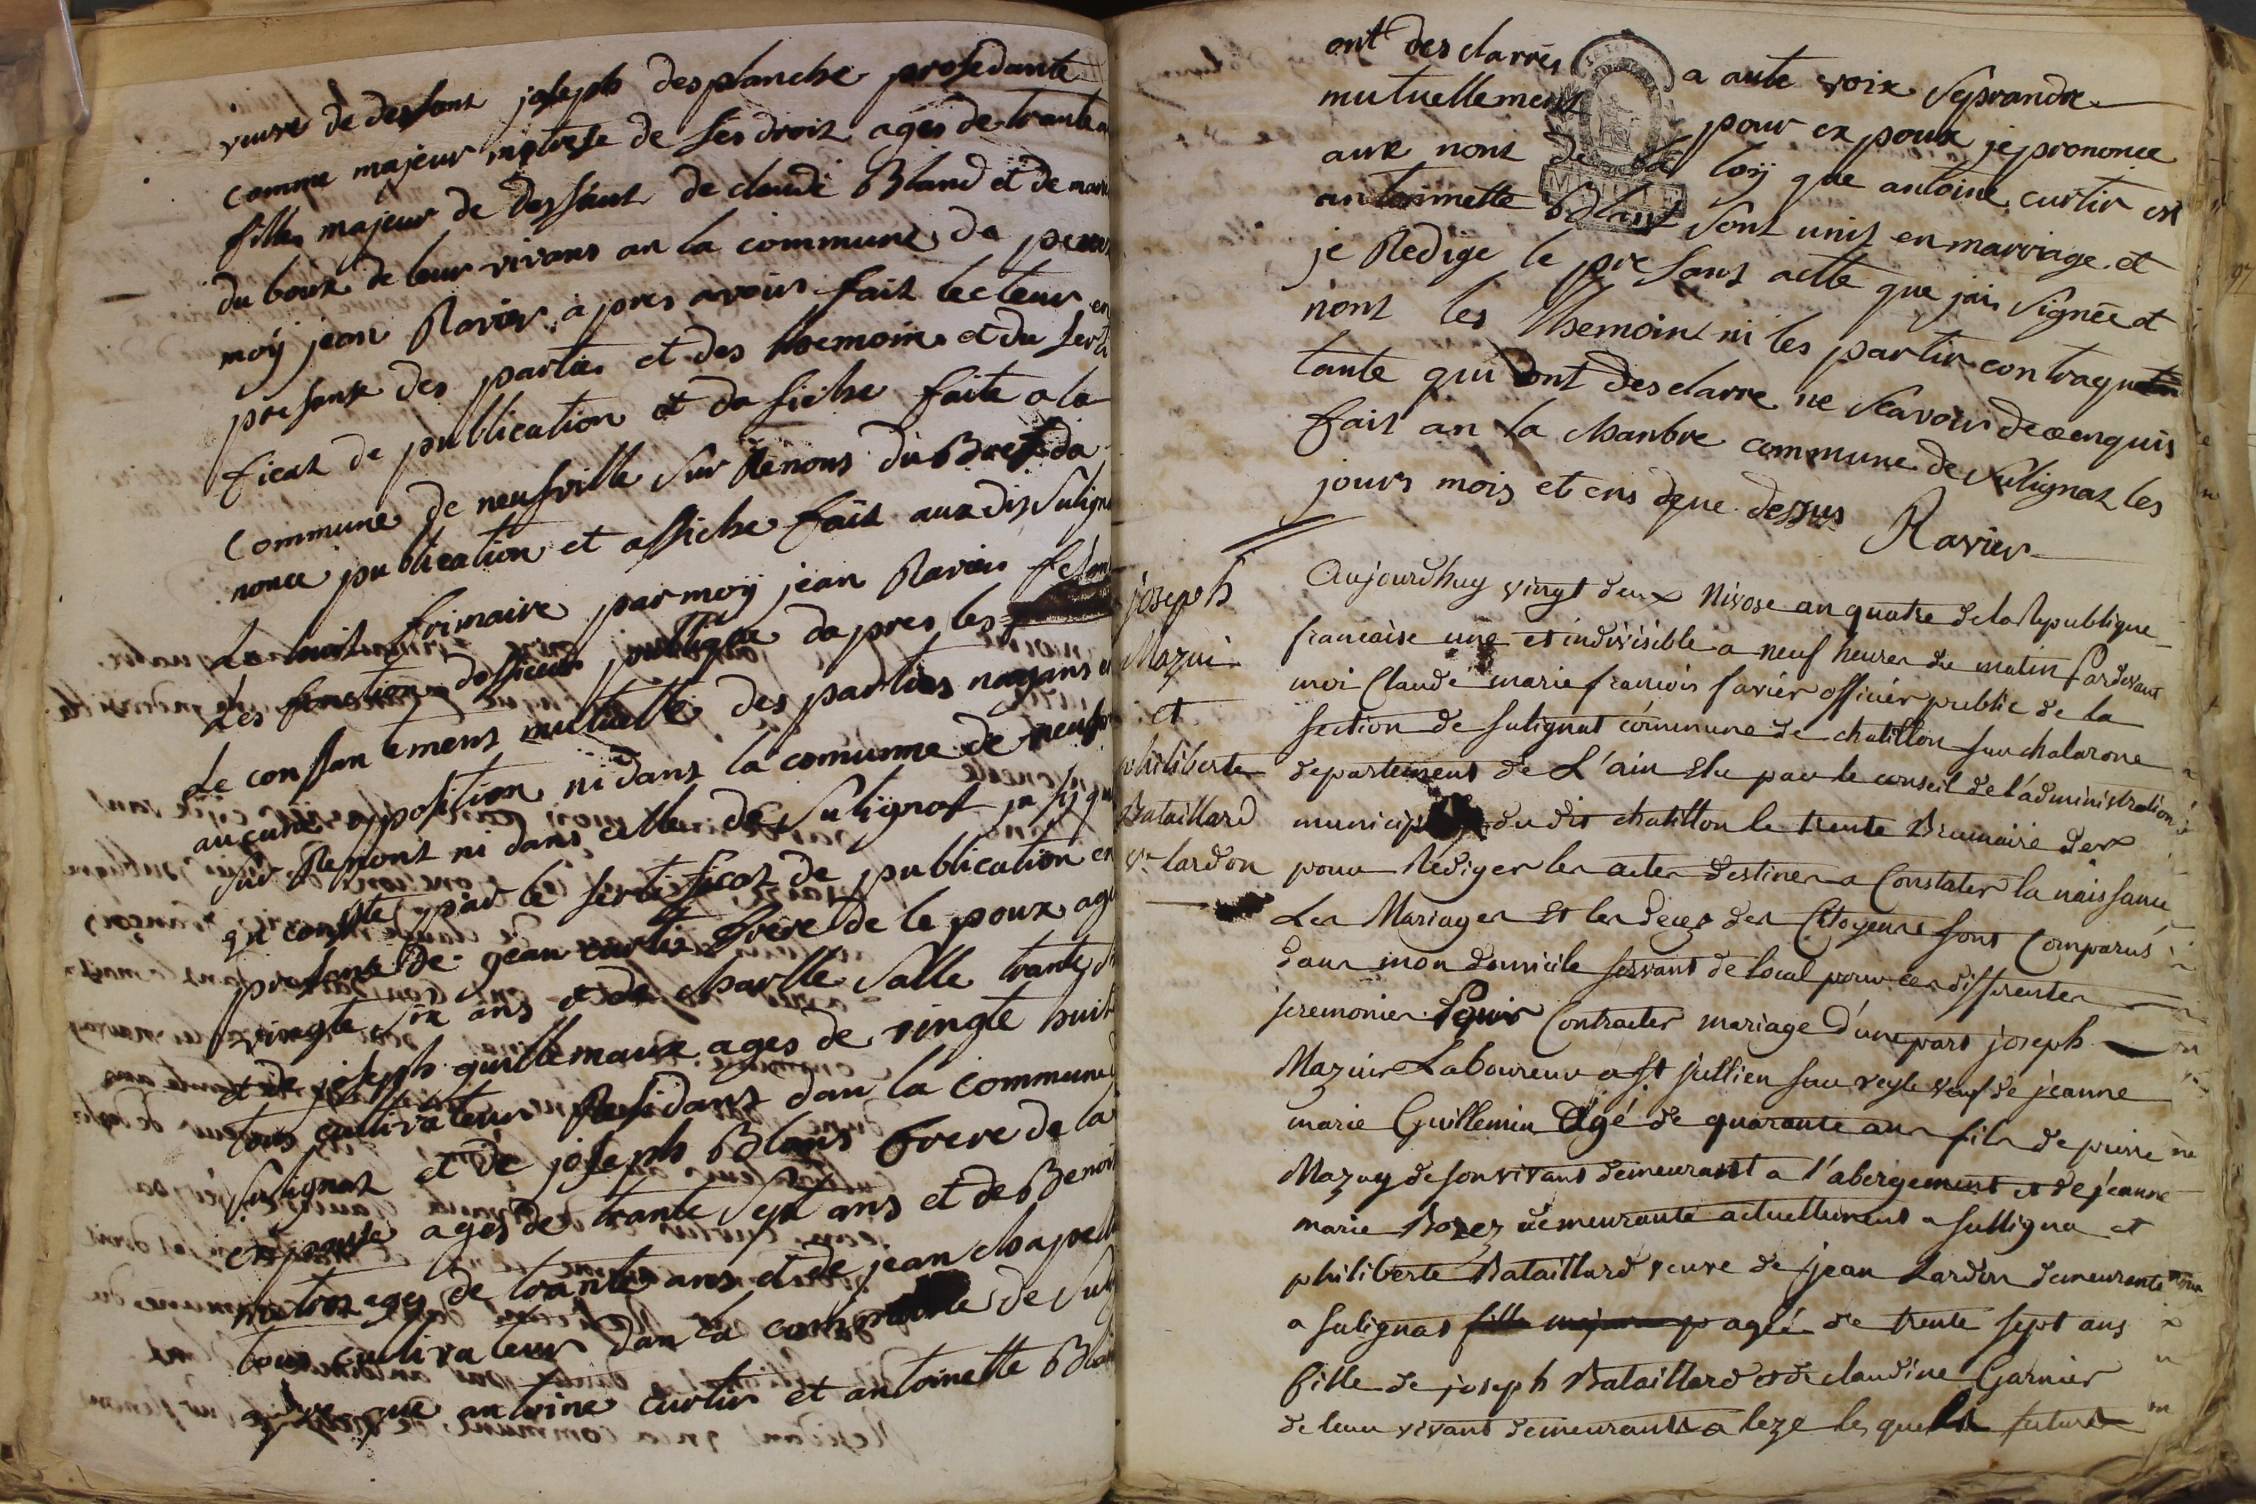 viuve de deffont joseph desplanche prosedante
comme majeur metrese de ses droit ages de trante
fille majeur de deffunt de claude Bland et de marie
du boux de leur vivans an la commune de
moÿ jean Ravier apres avoir fait lecteur en
presanse des partie et des themoin et du serti
ficat de publication et da fiche faite a la
commune de neufville sur Renons du Bref da
nonce publication et affiche fait audis Suligna
Le huit frimaire par moÿ jean Ravier
Les fonction dofficier publique dapres les
Le conssantement mutuelle des parties nayans
aucune opposition ni dans la comunne de neufv
sur Renont ni dans celle de Sulignat
qui conste par le sertificat de publication en
presanse de jean curtir frere de le poux age
vingte six ans et de charlle Salle trante
et de joseph guillemaux ages de vingte huit
tous cultivateur Residant dan la commune
Sulignat et de joseph Blans frere de la
expouse ages de trante sept ans et de Benoit
ages de trante ans et de jean chapell
tous cultivateur dan la commune de Sulig
que antoine curtir et antoinette Blan
ont desclarrés a aute voix Seprandre
mutuellement pour expoux je prononce
aux nont de la loÿ que antoine curtir est
antoinette Blanc sont unis en marriage et
je Redige le presans actte que jais signée et
nont les themoint ni les partir contragnt
tante qui ont desclarre ne Scavoir de cenquis
fait an la chanbre commune de Sulignat les
jours mois et ens que dessus Ravier
joseph
Mazui
et
philiberte
Bataillard
Ve lardon
Aujourdhuy vingt deux Nivose an quatre de la Republique
francaise une et indivisible a neuf heures du matin pardevant
moi Claude marie francois favier officier public de la
section de sulignat commune de chatillon sur chalarone
departement de L'ain Elu par le conseil de l'administration
municip du dit chatillon le trente Brumaire der
pour Rediger les actes destines a Constater la naissance
Les Mariages Et les deces des Citoyens sont Comparus
dans mon domicile servant de local pour ces differentes
seremonies Pour Contracter mariage d'une part joseph
Mazuir Laboureur a st jullien sur vesle veuf de jeanne
marie Guillemin Agé de quarante ans fils de pierre
Mazuy de son vivant demeurant a l'abergement et de jeanne
marie Bozez demeurante actuellement a sulligna et
philiberte Bataillard veuve de jean Lardon demeurante
a sulignat fille majeure p agée de trente sept ans
fille de joseph Bataillard et de claudine Garnier
de leur vivant demeurants a leze les quels futurs